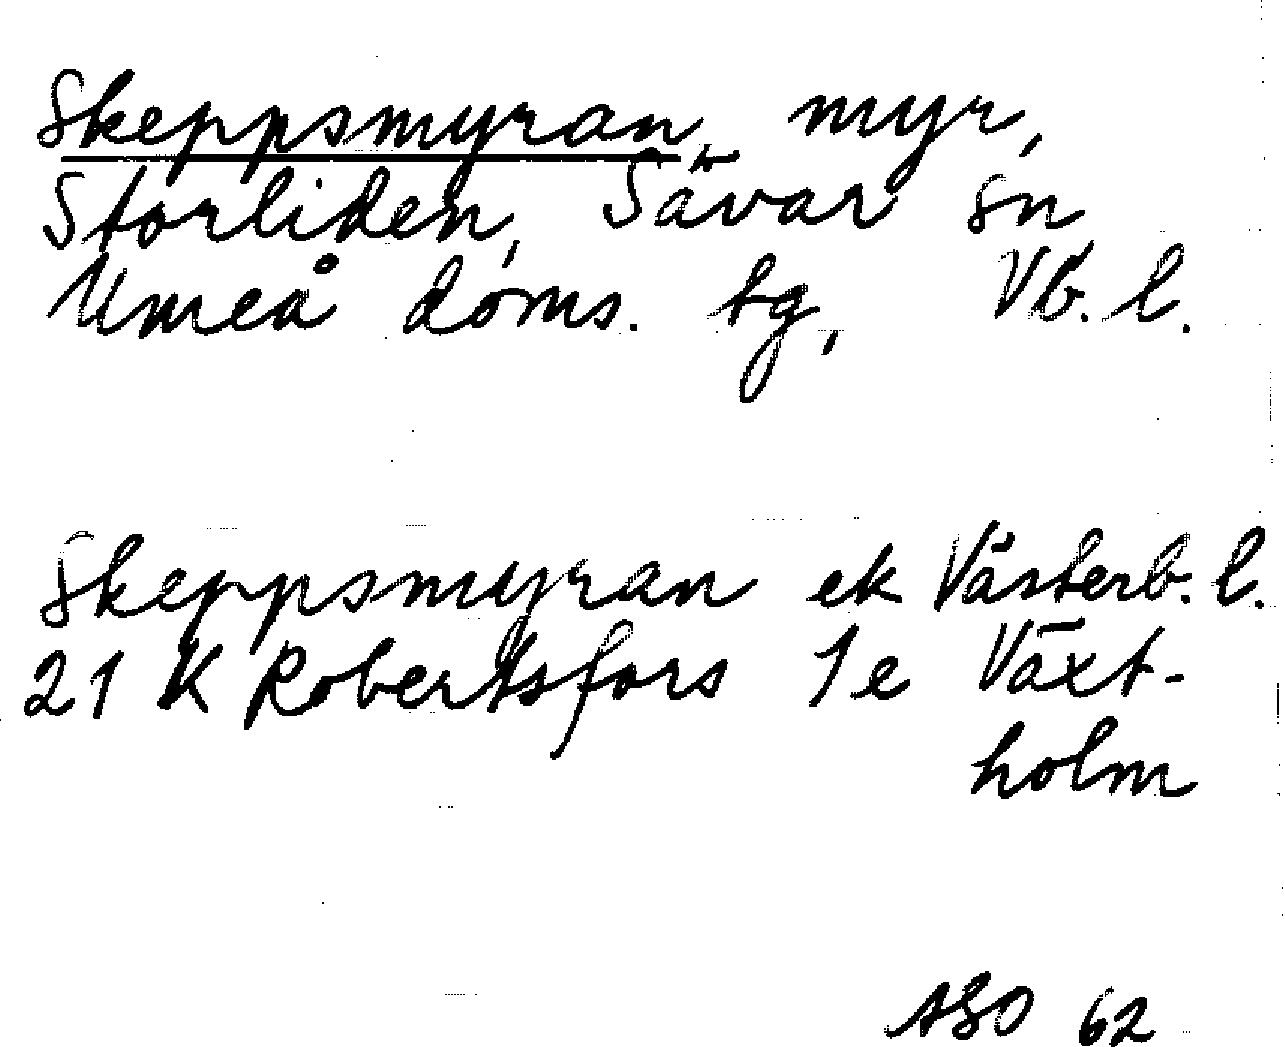 Skeppsmyran, myr,
Storliden, Sävar sn
Umeå doms. tg, Vb. l.
Skeppsmyran ek Västerb. l.
21 K Robertsfors 1e Växt-
holm
ASO 62